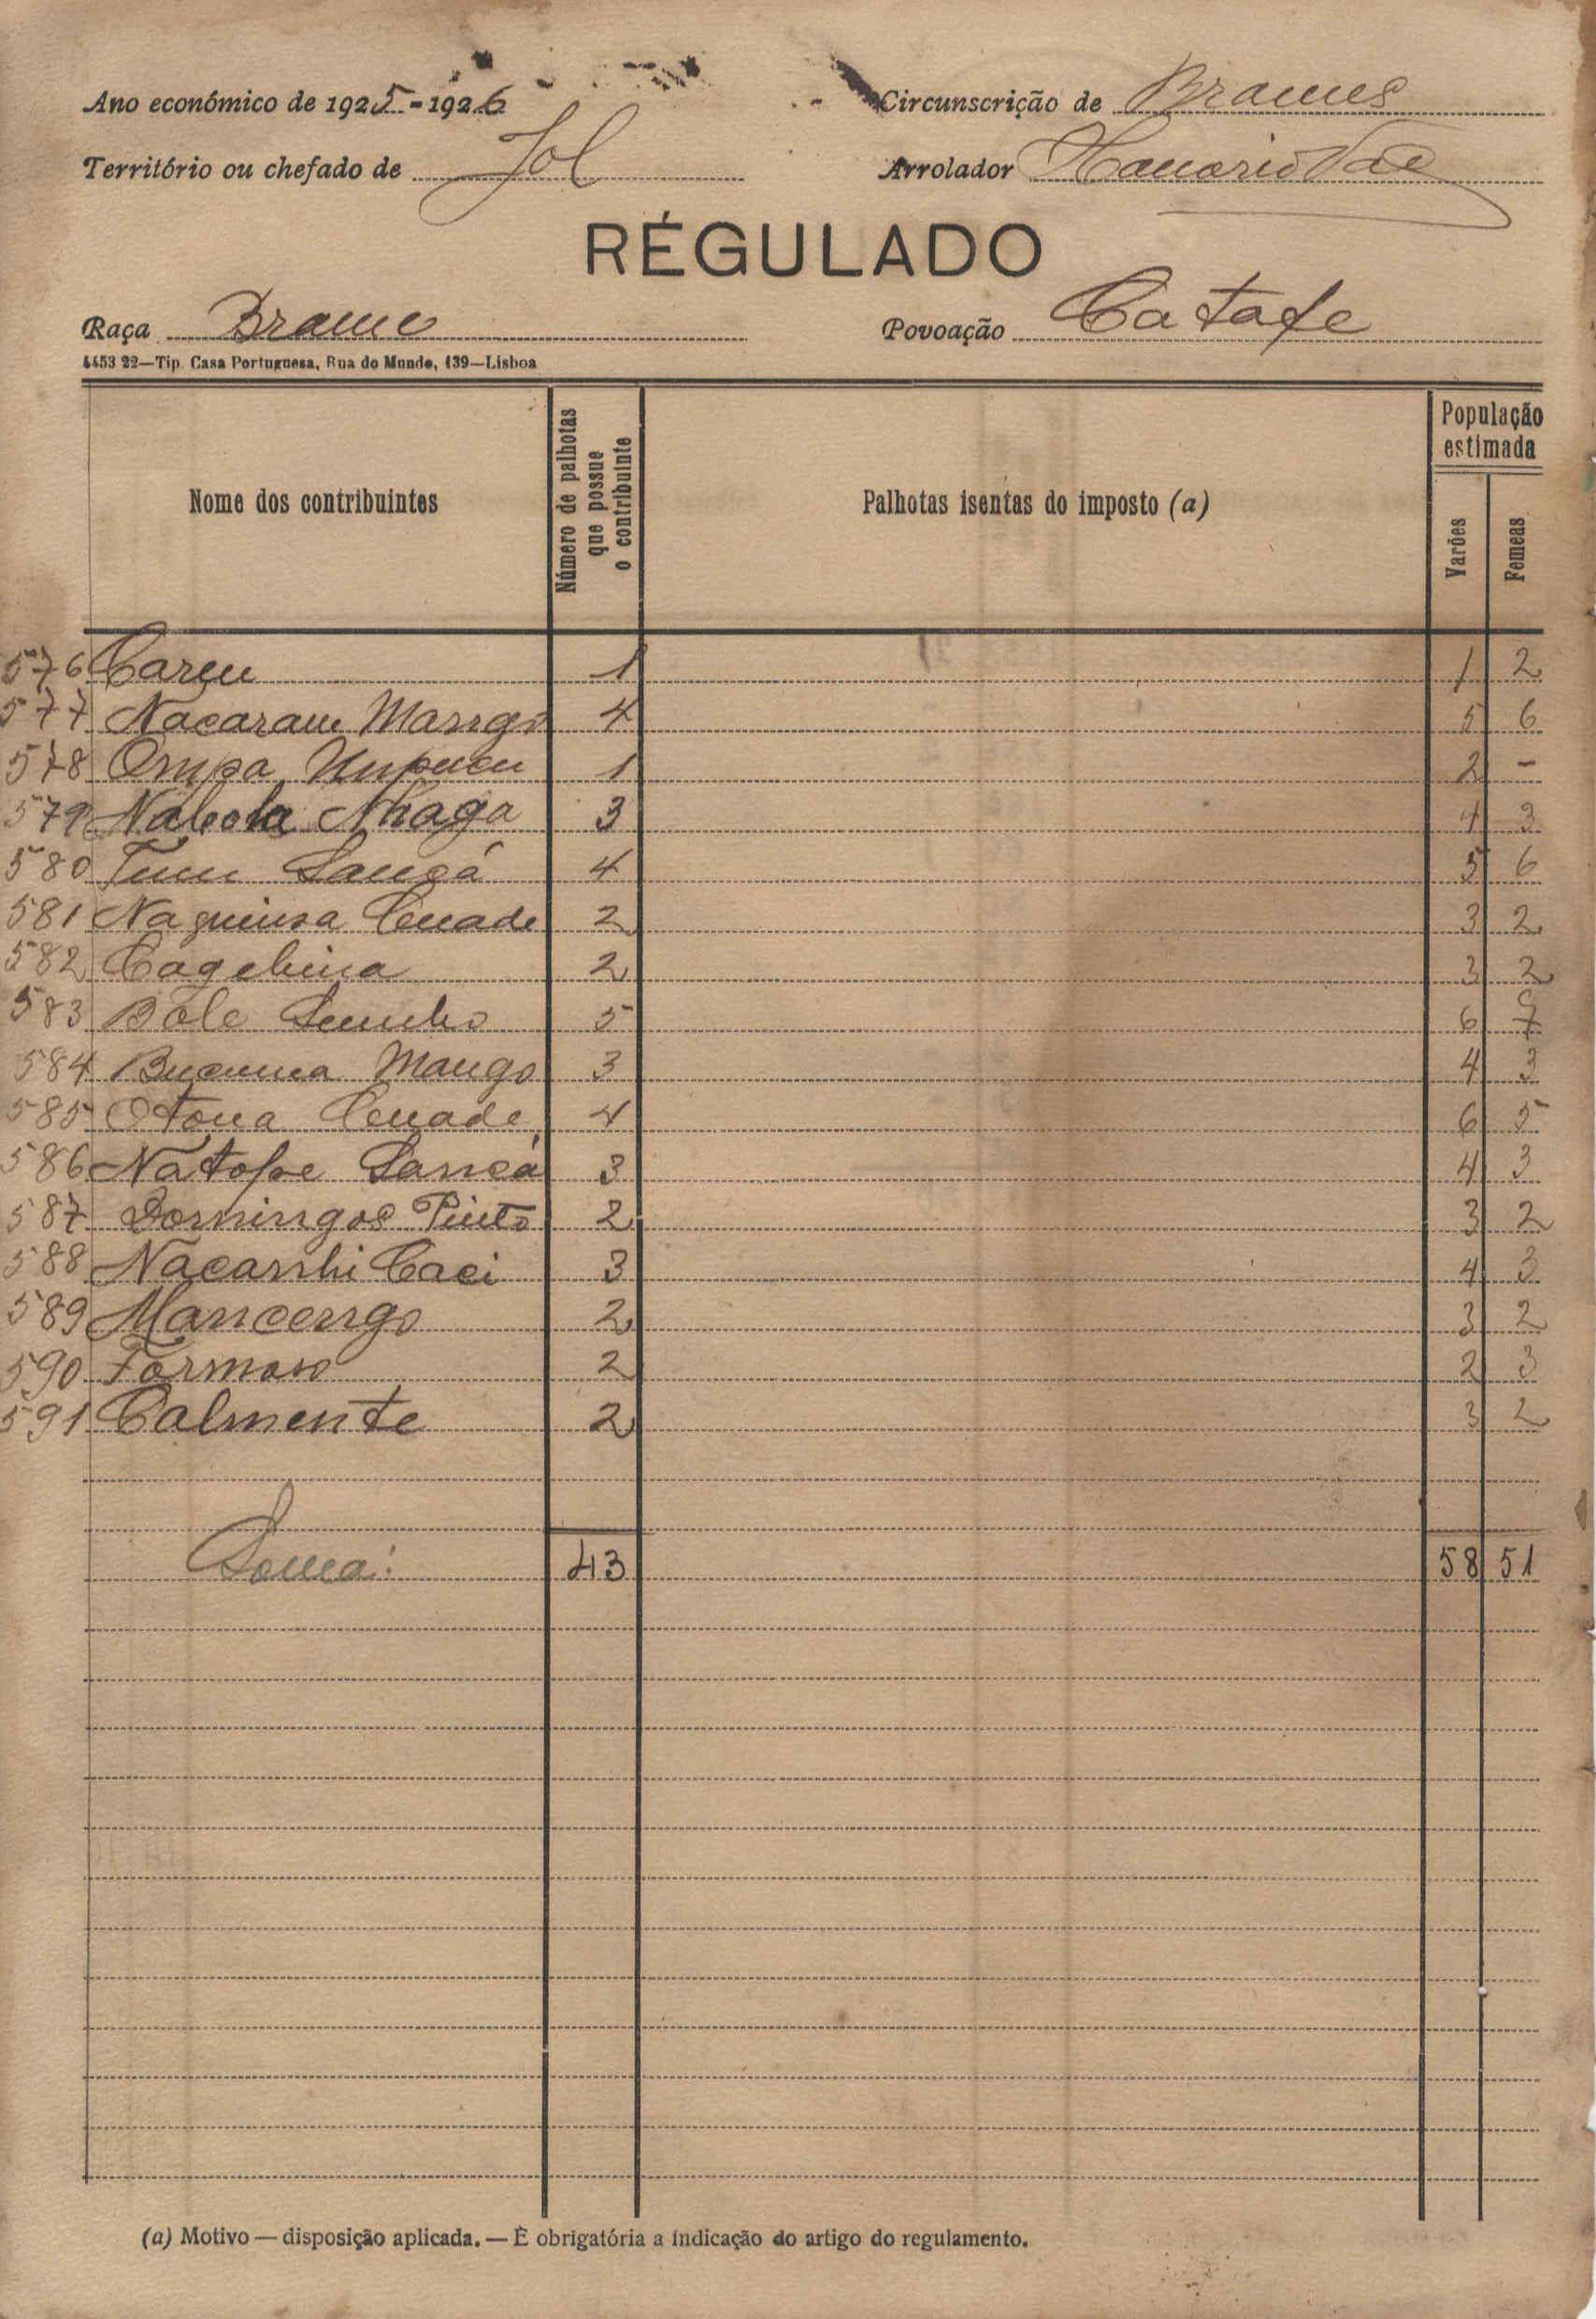 Ano económico de 1925-1926
Circunscrição de Brames
Território ou chefado de Jol
Arrolador Honorio Vaz
RÉGULADO
Raça Brame
Povoação Catafe
4453 22—Tip. Casa Portuguesa, Rua do Mundo, 139—Lisboa
Nome dos contribuintes
Número de palhotas que possue o contribuinte
Palhotas isentas do imposto (a)
População estimada
Varões
Femeas
576 1 1 2
577 Nacaram Mango 4 5 6
578 Ompa 1 2 -
579 Nabola Nhaga 3 4 3
580 Sancá 4 5 6
581 2 3 2
582 2 3 2
583 Bale 5 6 7
584 Mango 3 4 3
585 4 6 5
586 Natope Sancá 3 4 3
587 Domingos Pinto 2 3 2
588 Nacanhi Caci 3 4 3
589 Mancengo 2 3 2
590 Formoso 2 2 3
591 Calmente 2 3 2
Soma: 43 58 51
(a) Motivo — disposição aplicada. — É obrigatória a indicação do artigo do regulamento.